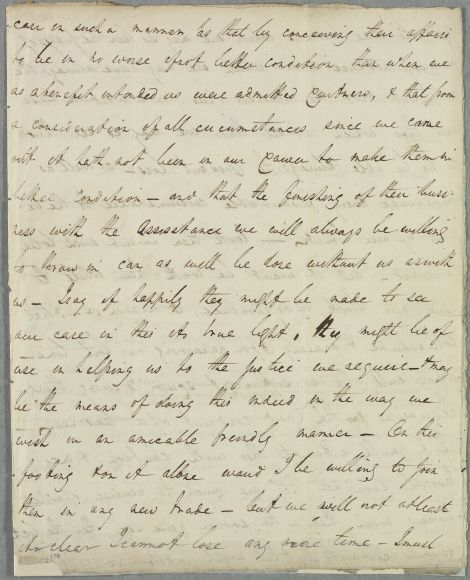 case in such a manner as that by conceiving their affairs
to be in no worse if not better condition than when we
as a benefit intended us were admitted partners, & that from
a consideration of all circumstances since we came
into it hath not been in our power to make them in
better condition – and that the finishing of their busi-
ness with the Assistance we will always be willing
to throw in can as well be done without us as with
us – I say if happily they might be made to see
our case in this its true light, they might be of
use in helping us to the justice we require – & may
be the means of doing this indeed in the way we
wish in an amicable friendly manner – On this
footing & on it alone would I be willing to join
them in any new trade – but we will not at least
clear I cannot lose any more time – I must